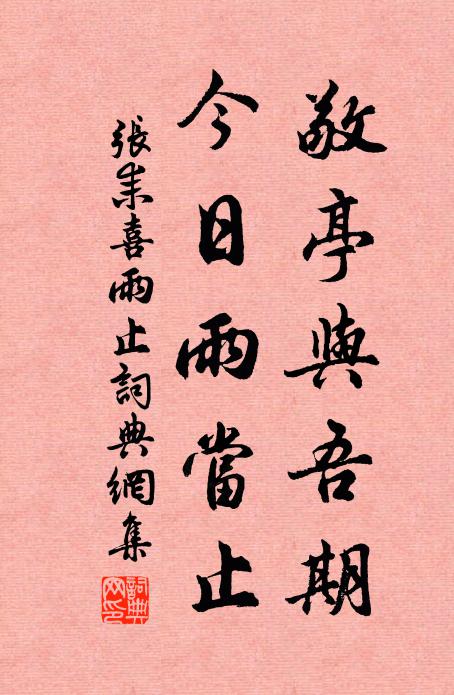 敬亭與吾期
今日雨當止
張耒喜雨止詞典網集
詞典网印